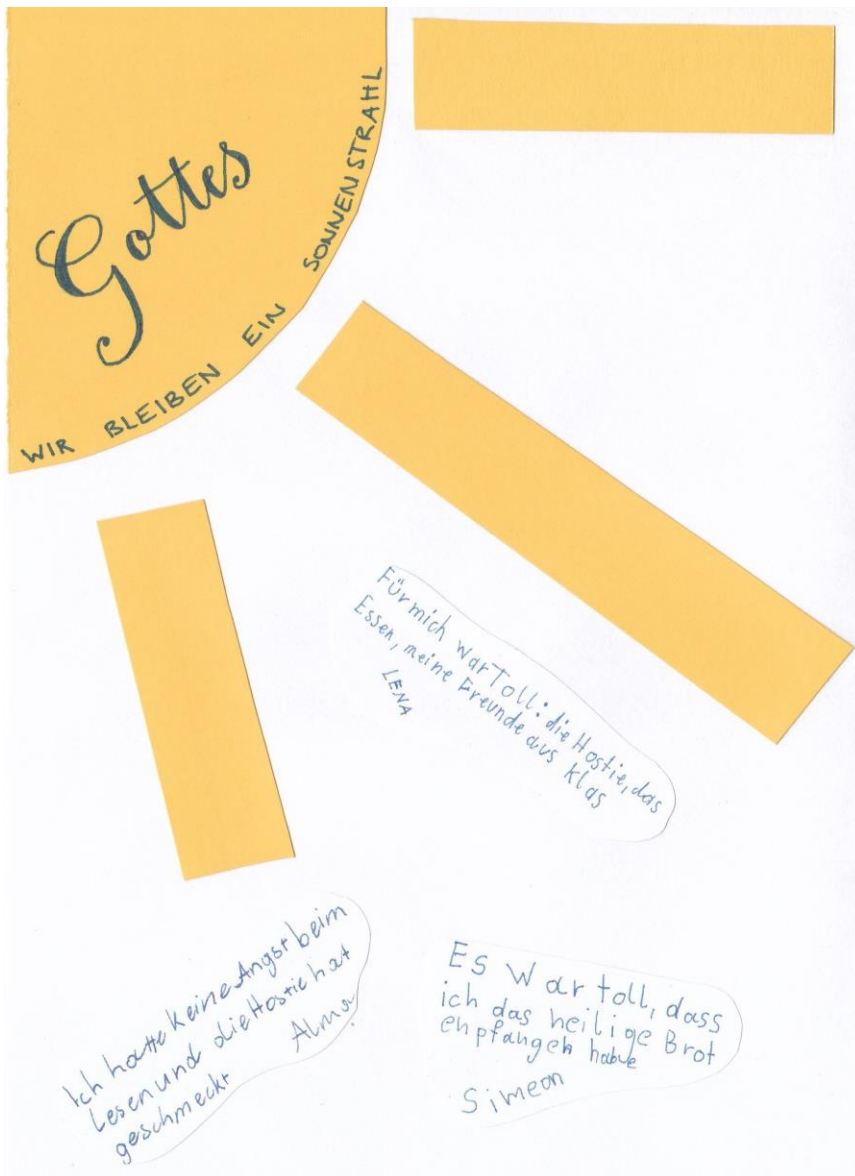 Gottes
WIR BLEIBEN EIN SONNENSTRAHL
Für mich war Toll: die Hostie, das
Essen, meine Freunde aus Klas
LENA
Ich hatte keine Angst beim
Lesen und die Hostie hat
geschmeckt Alma
Es war toll, dass
ich das heilige Brot
enpfangen habe
Simeon